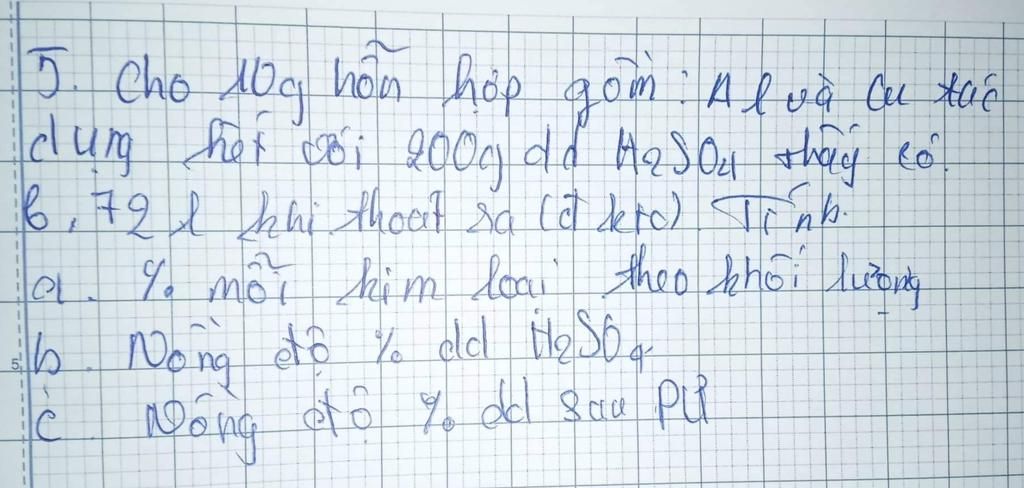 5. Cho 10g hỗn hợp gồm: Al và Cu tác
dụng hết với 200g dd H2SO4 thấy có.
6,72 l khí thoát ra (đktc). Tính.
a. % mỗi kim loại theo khối lượng
b. Nồng độ % dd H2SO4
c Nồng độ % dd sau PƯ